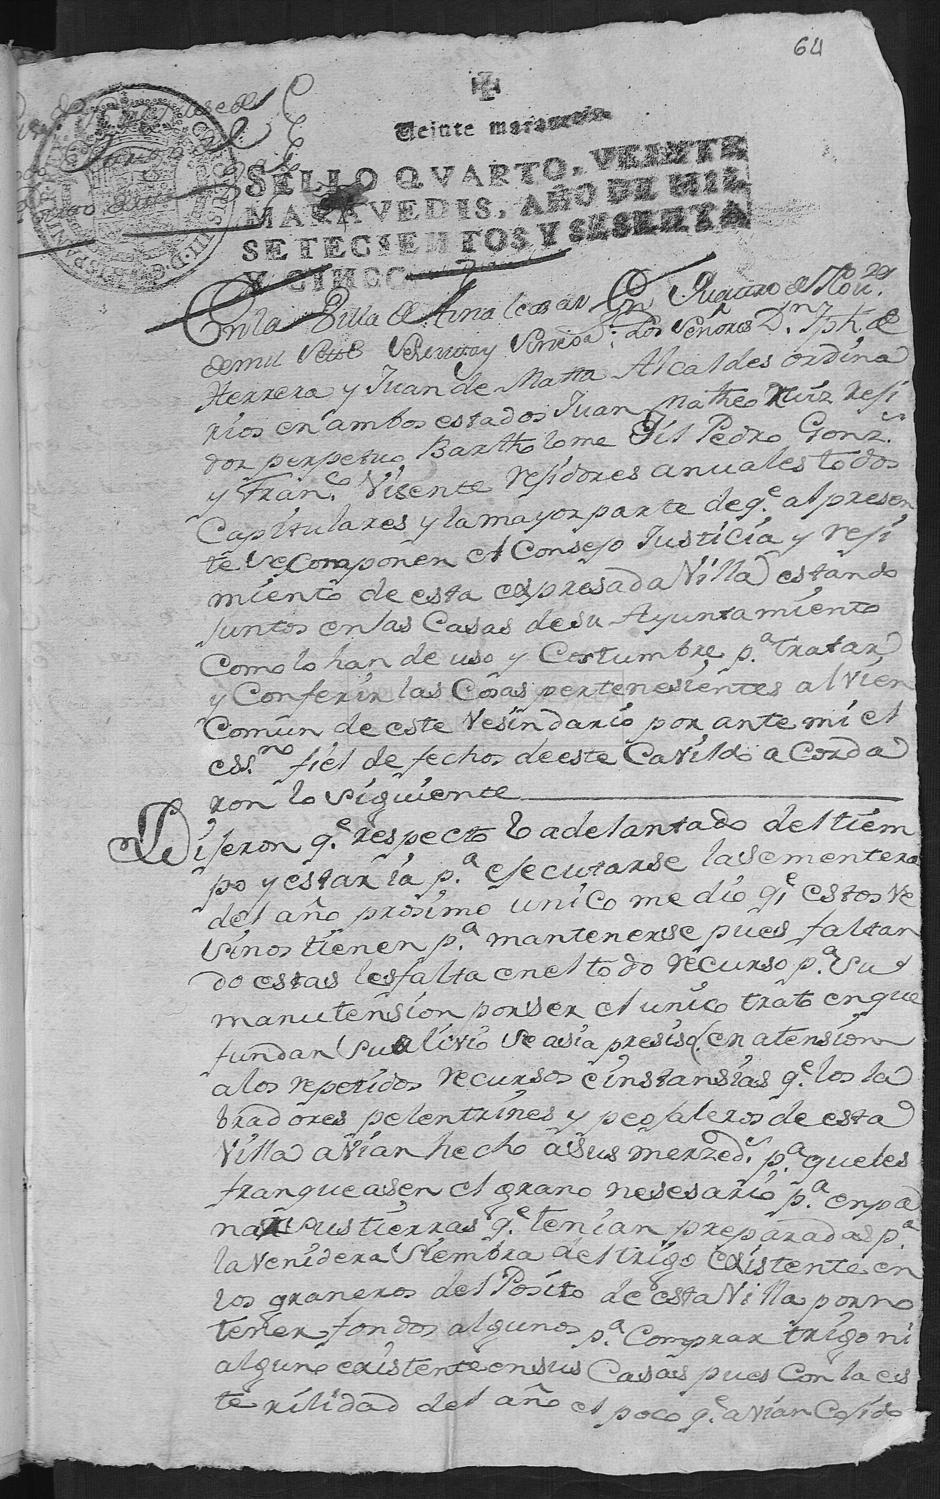 64
Veinte maravedis.
SELLO QVARTO, VEINTE
MARAVEDIS, AÑO DE MIL
SETECIENTOS Y SESENTA
Y CINCO.
En la Villa de Aznalcazar En Quatro de Nov.re
de mil Sett.s Sesenta y Sinco a.s los Señores D.n Jph. de
Herrera y Juan de Matta Alcaldes ordina
rios en ambos estados Juan Matheo Ruiz Reji
dor perpetuo Bartholome Gil Pedro Gonz.s
y Fran.co Visente rejidores anuales todos
Capitulares y la mayor parte de q.e al presen
te se componen el Consejo Justicia y reji
miento de esta expresada Villa estando
juntos en las Casas de su Ayuntamiento
Como lo han de uso y Costumbre p.a tratar
y Conferir las Cosas pertenesientes al vien
Comun de este Vesindario por ante mi el
ess.no fiel de fechos de este Cavildo acorda
ron lo siguiente
Dijeron q.e respecto lo adelantado del tiem
po y estaria p.a ejecutarse la sementera
del año prosimo unico medio q.e estos Ve
sinos tienen p.a mantenerse pues faltan
do estas les falta en el todo recurso p.a su
manutension por ser el unico trato en que
fundan su alivio se asia presiso en atension
a los repetidos recursos e instansias q.e los la
bradores pelentrines y pegujaleros de esta
Villa avian hecho a sus merzed.s p.a que les
franqueasen el grano nesesario p.a enpa
nar sus tierras q.e tenian preparadas p.a
la venidera siembra del trigo existente en
los graneros del Posito de esta Villa por no
tener fondos algunos p.a comprar trigo ni
alguno existente en sus Casas pues Con la es
terilidad del año el poco q.e avian Cojido